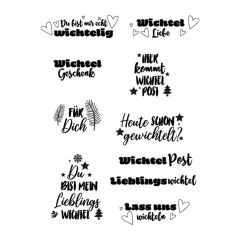 Du bist mir echt
wichtelig
Wichtel
Liebe
Wichtel
Geschenk
HIER
kommt
WICHTEL
POST
FÜR
Dich
Heute SCHON
gewichtelt?
Du
BIST MEIN
Lieblings
WICHTEL
Wichtel Post
Lieblingswichtel
Lass uns
wichteln